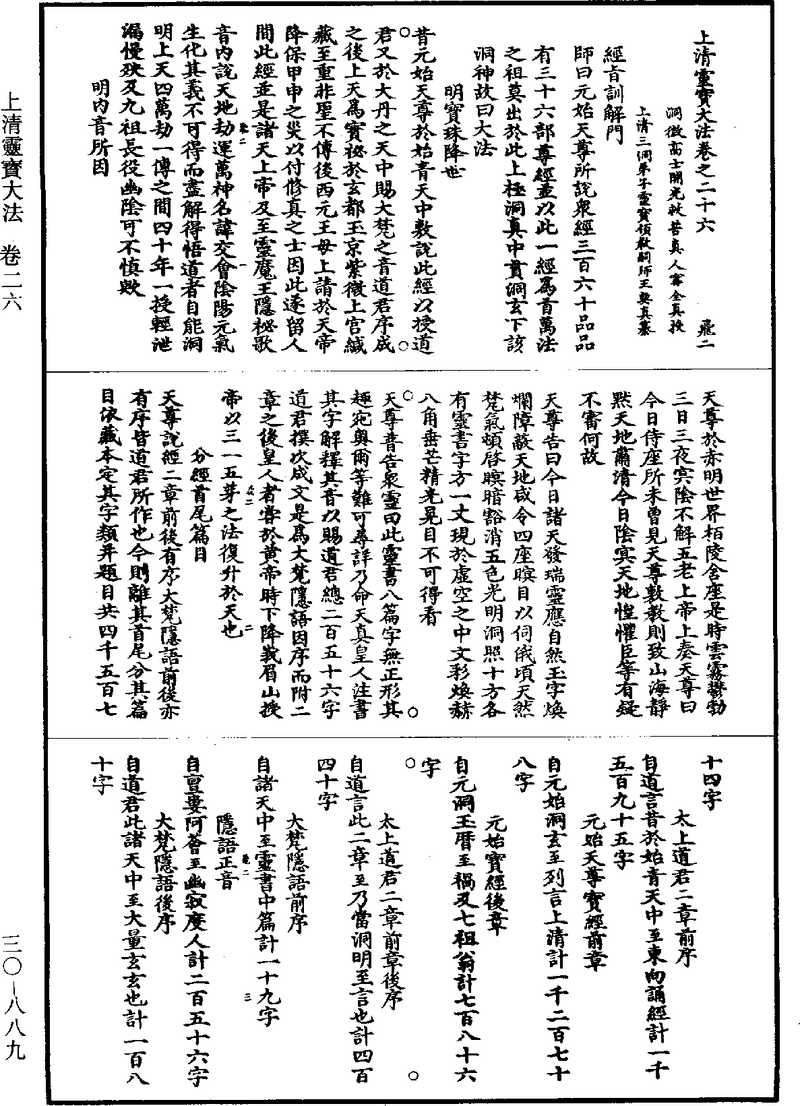 上清靈寶大法卷之二十六
飛二
洞微高士開光救苦真人甯全真授
上清三洞弟子靈寶領教嗣師王契真纂
經音訓解門
師曰元始天尊所說衆經三百六十品品
有三十六部尊經並以此一經爲首萬法
之祖莫出於此上極洞真中貫洞玄下該
洞神故曰大法
明寶珠降世
昔元始天尊於始青天中敷說此經以授道
君又於大丹之天中賜大梵之音道君序成
之後上天爲寶祕於玄都玉京紫微上宮緘
藏至重非聖不傳後西元王母上請於天帝
降保甲申之災以付修真之士因此遂留人
間此經並是諸天上帝及至靈魔王隱祕歌
音內說天地劫運萬神名諱交會陰陽元氣
生化其義不可得而盡解得悟道者自能洞
明上天四萬劫一傳之間四十年一授輕泄
漏慢殃及九祖長役幽陰可不慎歟
明內音所因
天尊於赤明世界栢陵舍座是時雲霧鬱勃
三日三夜冥陰不解五老上帝上奏天尊曰
今日侍座所未曾見天尊敷教則致山海靜
默天地肅清今日陰冥天地惶懼臣等有疑
不審何故
天尊告曰今日諸天發瑞靈應自然玉字煥
爛障蔽天地咸令四座瞑目以伺俄頃天然
梵氣頓啓暝暗豁消五色光明洞照十方各
有靈書字方一丈現於虛空之中文彩煥赫
八角垂芒精光晃目不可得看
天尊普告衆靈曰此靈書八篇字無正形其
趣宛奧爾等難可尋詳乃命天真皇人注書
其字解釋其音以賜道君總二百五十六字
道君撰次成文是爲大梵隱語因序而附二
章之後皇人者嘗於黃帝時下降峩眉山授
帝以三一五芽之法復升於天也
分經首尾篇目
天尊說經二章前後有序大梵隱語前後亦
有序皆道君所作也今則離其首尾分其篇
目依藏本定其字類并題目共四千五百七
十四字
太上道君二章前序
自道言昔於始青天中至東向誦經計一千
五百九十五字
元始天尊寶經前章
自元始洞玄至列言上清計一千二百七十
八字
元始寶經後章
自元洞玉曆至禍及七祖翁計七百八十六
字
太上道君二章前章後序
自道言此二章至乃當洞明至言也計四百
四十字
大梵隱語前序
自諸天中至靈書中篇計一十九字
隱語正音
自亶婁阿薈至幽寂度人計二百五十六字
大梵隱語後序
自道君此諸天中至大量玄玄也計一百八
十字
上清靈寶大法 卷二六
三〇—八八九